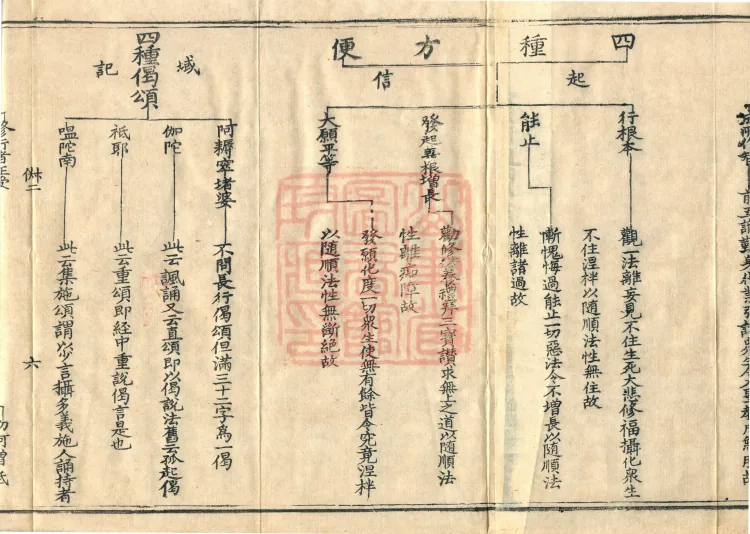 四種方便
起信
行根本
觀一切法離妄見不住生死大悲修福攝化衆生
不住涅槃以隨順法性無住故
能止
慚愧悔過能止一切惡法令不增長以隨順法
性離諸過故
發起善根增長
勤修供養禮拜三寶讚求無上之道以隨順法
性離癡障故
大願平等
發願化度一切衆生使無有餘皆令究竟涅槃
以隨順法性無斷絕故
四種偈頌
域記
阿耨窣堵婆
不問長行偈頌但滿三十二字為一偈
伽陀
此云諷誦又云直頌即以偈說法舊云孤起偈
祇耶
此云重頌即經中重說偈言是也
嗢陀南
此云集施頌謂以少言攝多義施人誦持者
六